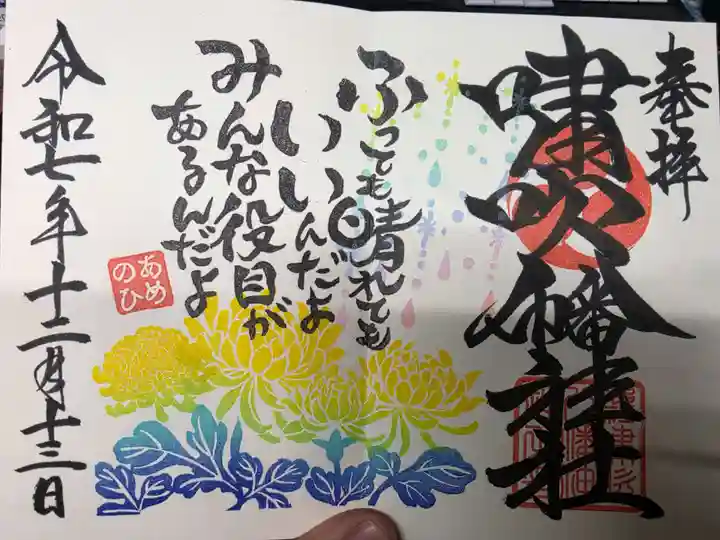 奉拝
嘯吹八幡社
ふっても晴れても
いいんだよ
みんな役目が
あるんだよ
あめ
のひ
令和七年十二月十三日